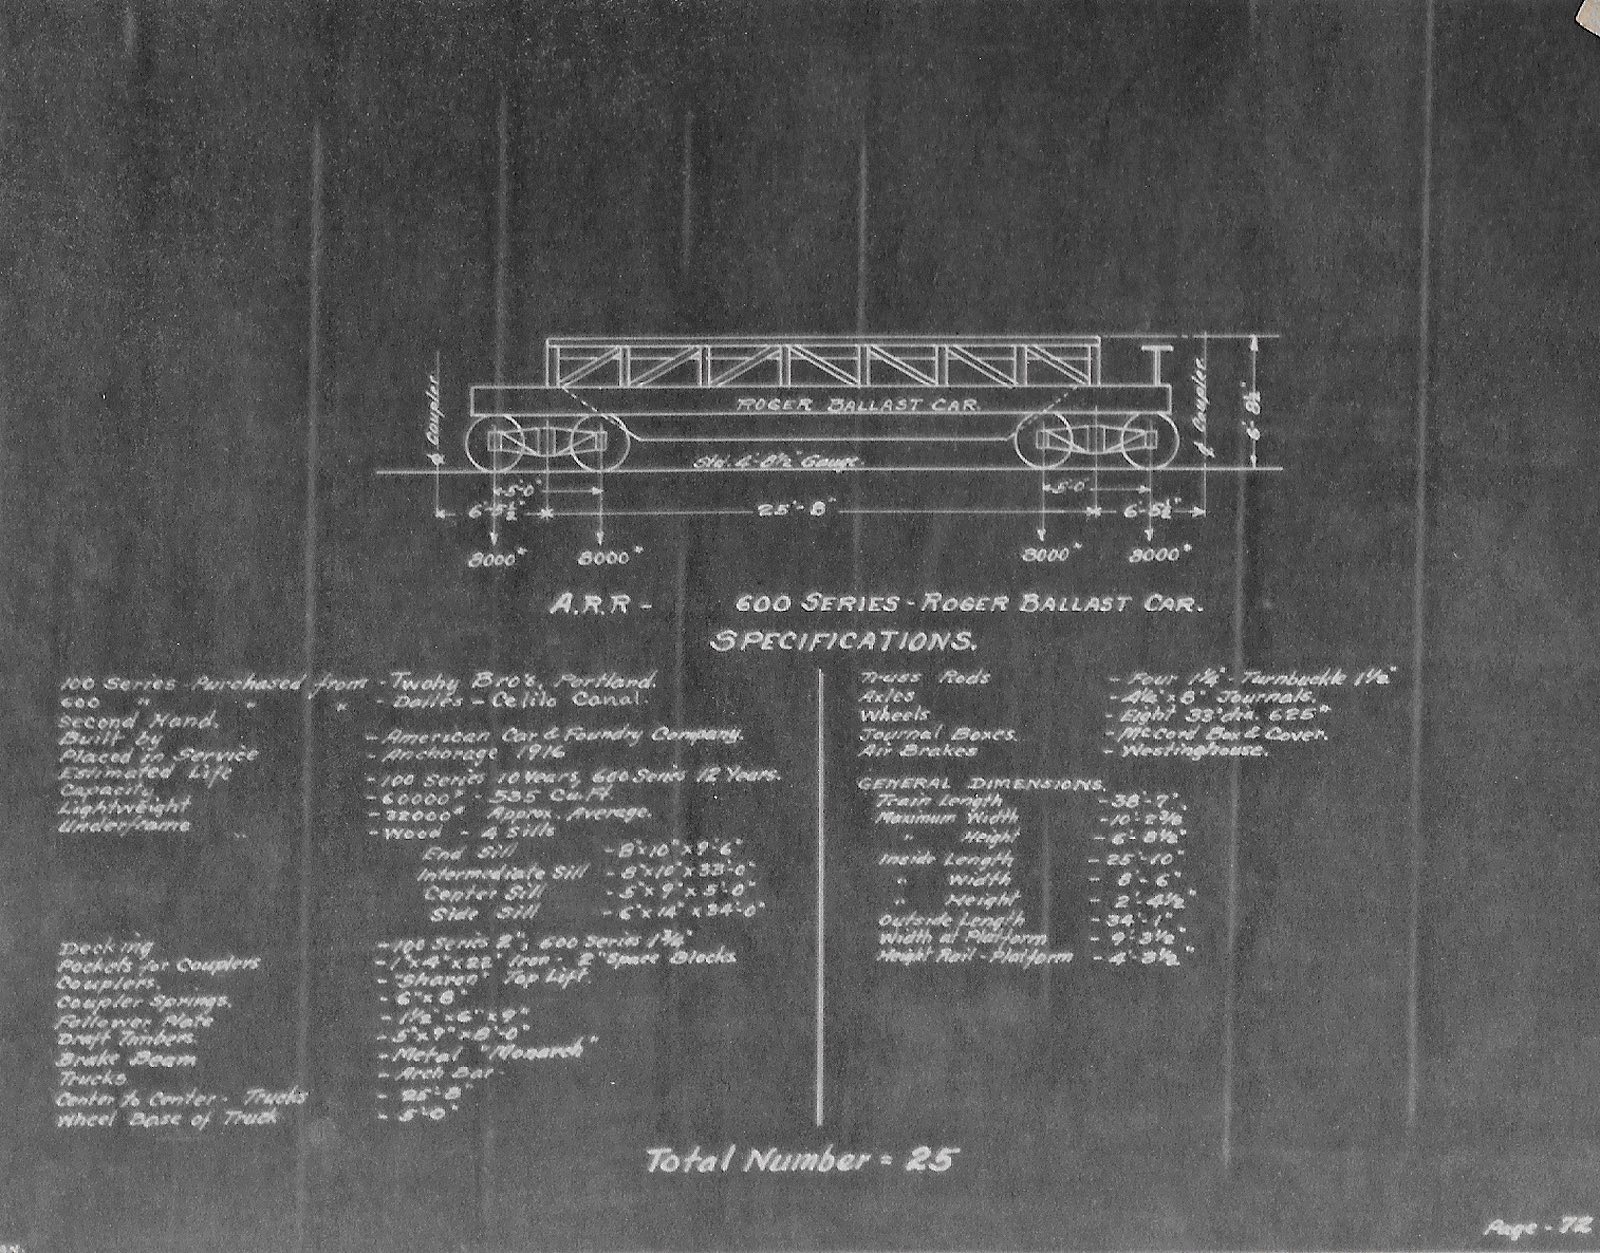 ¢ Coupler.
ROGER BALLAST CAR.
¢ Coupler.
6'-8½"
Std. 4'-8½" Gauge.
5'-0" 5'-0"
6'-5½" 25'-8" 6'-5½"
8000# 8000# 8000# 8000#
A.R.R- 600 SERIES - ROGER BALLAST CAR.
SPECIFICATIONS.
100 Series - Purchased from - Twohy Bro's. Portland.
600 " " " - Dalles - Celilo Canal.
Second Hand.
Built by - American Car & Foundry Company.
Placed in Service - Anchorage 1916
Estimated Life - 100 Series 10 Years, 600 Series 12 Years.
Capacity. - 60000# - 535 Cu. Ft.
Lightweight - 32000# Approx. Average.
Underframe - Wood - 4 Sills
End Sill - 8"x10"x9'-6"
Intermediate Sill - 8"x10"x33'-0"
Center Sill - 5"x9"x5'-0"
Side Sill - 6"x14"x34'-0"
Decking - 100 Series 2", 600 Series 1¾"
Pockets for Couplers - 1"x4"x22" Iron - 2" Spare Blocks
Couplers. - "Sharon" Top Lift.
Coupler Springs. - 6"x8"
Follower Plate - 1½"x6"x9"
Draft Timbers. - 5"x9"x8'-0"
Brake Beam - Metal "Monarch"
Trucks. - Arch Bar -
Center to Center - Trucks - 25'-8"
Wheel Base of Truck - 5'-0"
Truss Rods - Four 1¼" - Turnbuckle 1½"
Axles - 4¼"x8" Journals.
Wheels - Eight 33" dia. 625#
Journal Boxes. - McCord Box & Cover.
Air Brakes - Westinghouse.
GENERAL DIMENSIONS.
Train Length - 38'-7"
Maximum Width - 10'-2⅜"
" Height - 6'-8½"
Inside Length - 25'-10"
" Width - 8'-6"
" Height - 2'-4½"
Outside Length - 34'-1"
Width at Platform - 9'-3½"
Height Rail - Platform - 4'-3½"
Total Number = 25
Page - 72